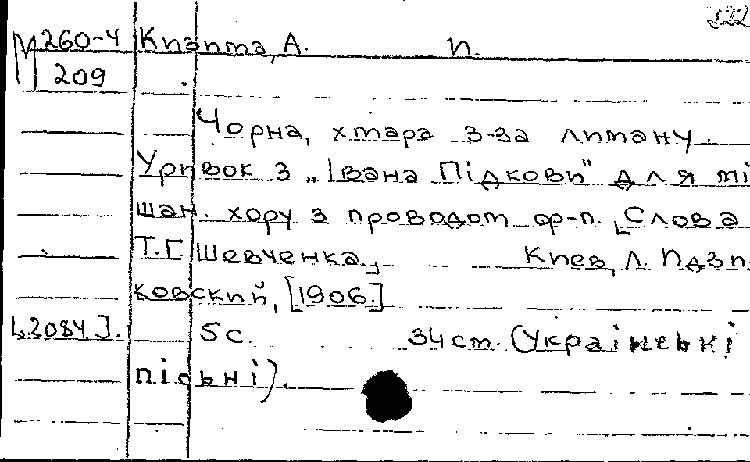 522
М 260-4 Кпзпта, А. п.
209
Чорна, хмара з-за лиману.
Уривок з „Івана Підкови" для мі
шан. хору з проводом ф-п. [Слова
Т.Г. Шевченка.] Киев, Л. Идзи
ковский, [1906.]
[2084]. 5с. 34 ст. (Українські
пісьні).